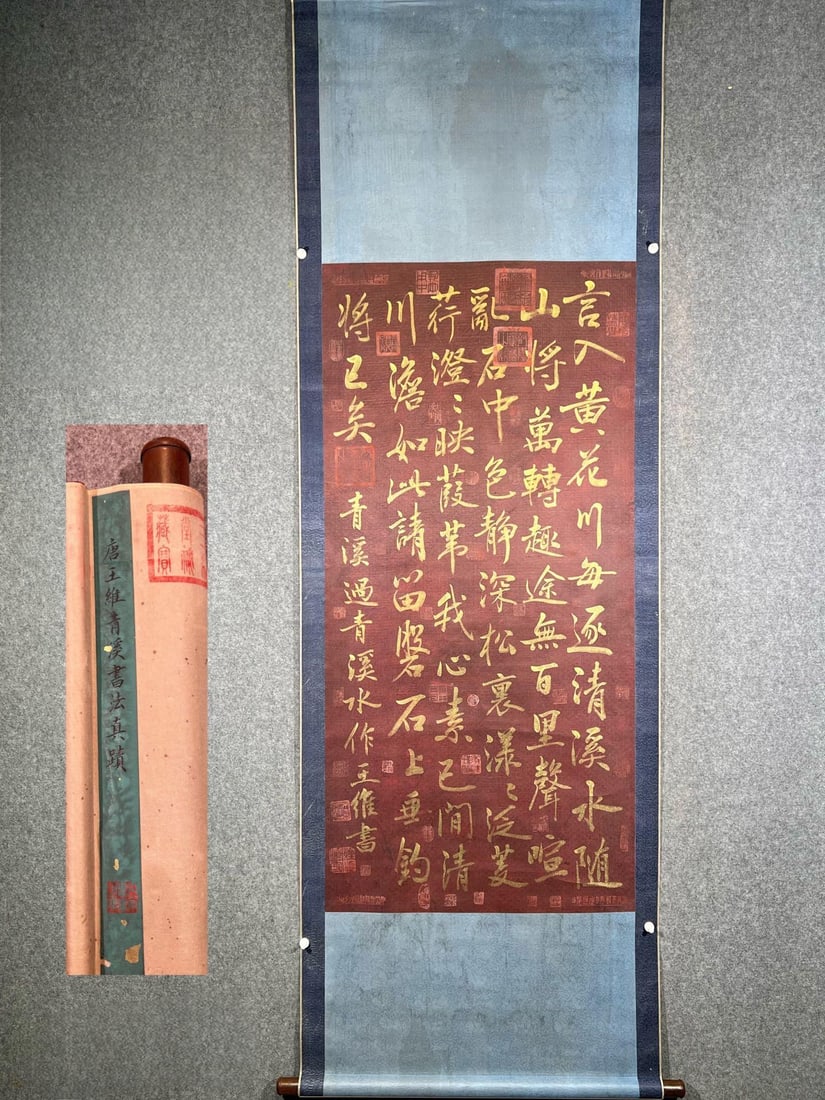 言入黄花川每逐清溪水随
山將萬轉趣途無百里聲喧
亂石中色靜深松裏漾〻泛菱
荇澄〻映葭苇我心素已閒清
川澹如此請留磐石上垂釣
將已矣
青溪過青溪水作王維書
唐王維青溪書法真蹟